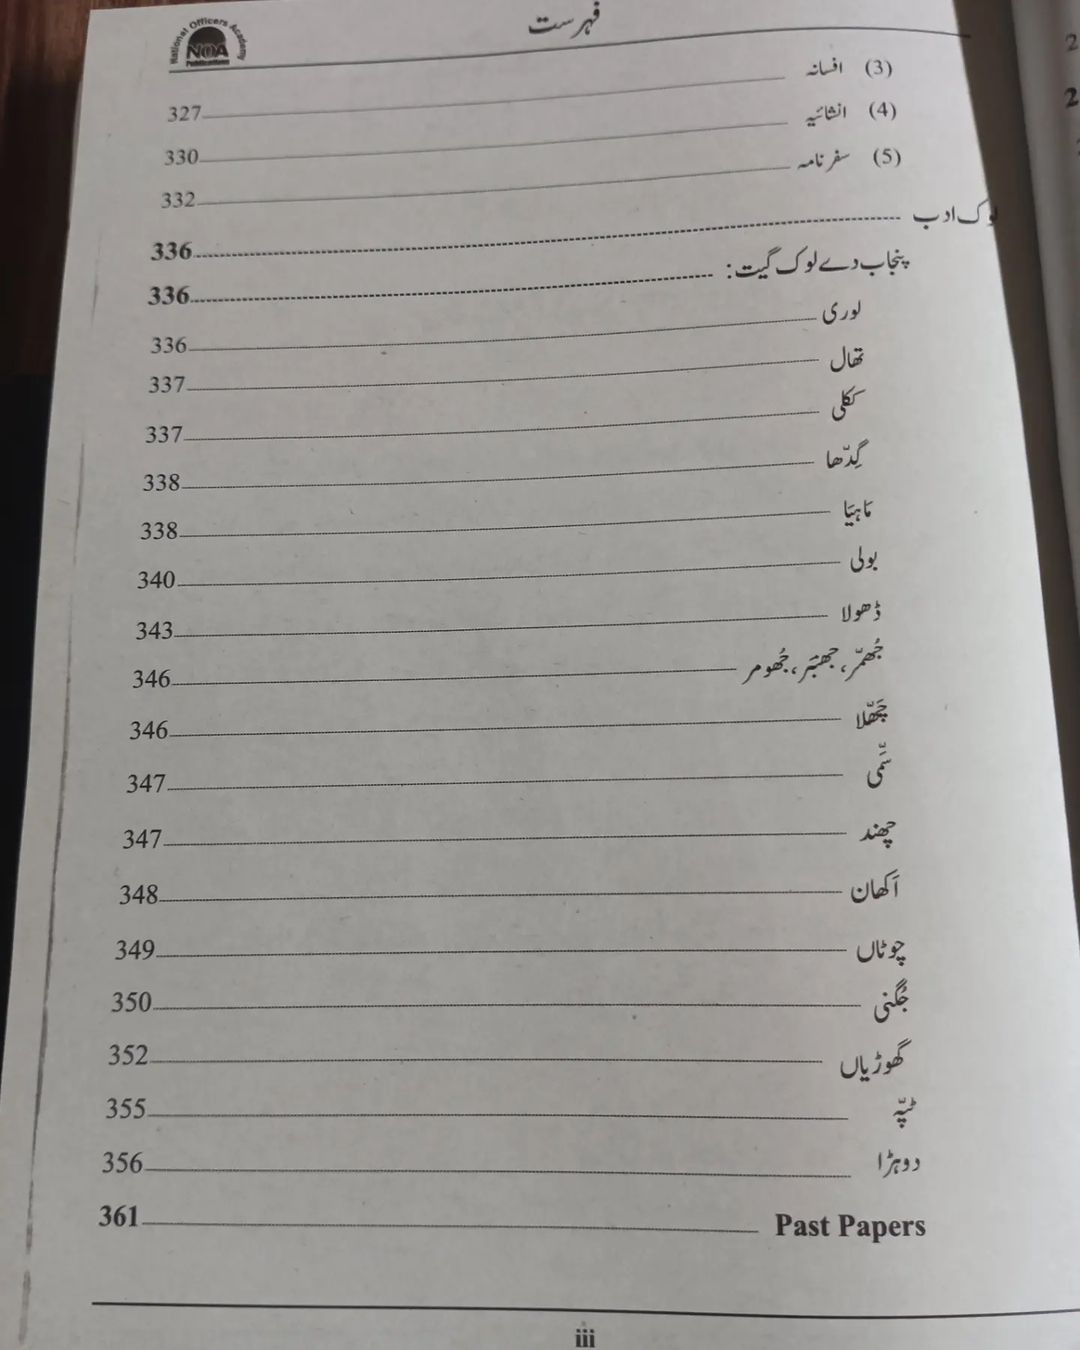 National Officers Academy
NOA
Publications
فہرست
(3) افسانہ 327
(4) انشائیہ 330
(5) سفر نامہ 332
لوک ادب 336
پنجاب دے لوک گیت: 336
لوری 336
تھال 337
ککلی 337
گِدّھا 338
مَاہِیَا 338
بولی 340
ڈھولا 343
جُھمّر، جھمّر، جُھومر 346
چَھلّا 346
سَمِّی 347
چھند 347
اَکھان 348
چوٹاں 349
جُگنی 350
گھوڑیاں 352
ٹپّہ 355
دوہڑا 356
Past Papers 361
iii
2
2